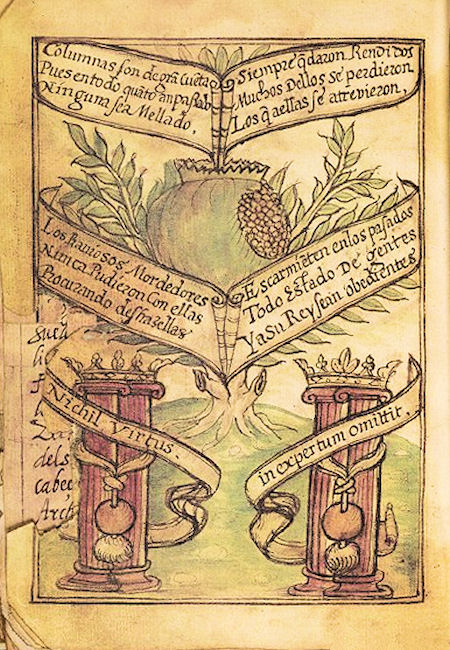 Columnas son de grã Cueta
Pues en todo quãto an pasado
Ninguna sea Mellado,
Siempre q̃ daron Rendidos
Muchos Dellos se perdieron
Los q̃ aellas se atrevieron,
Los Raviosos Mordedores
Nunca Pudieron Con ellas
Procurando desfazellas
Escarmieten en los pasados
Todo Estado De gentes
Y a Su Rey sean obedientes
Nichil Virtus.
in expertum omittit,
dels
Cabec
Arch